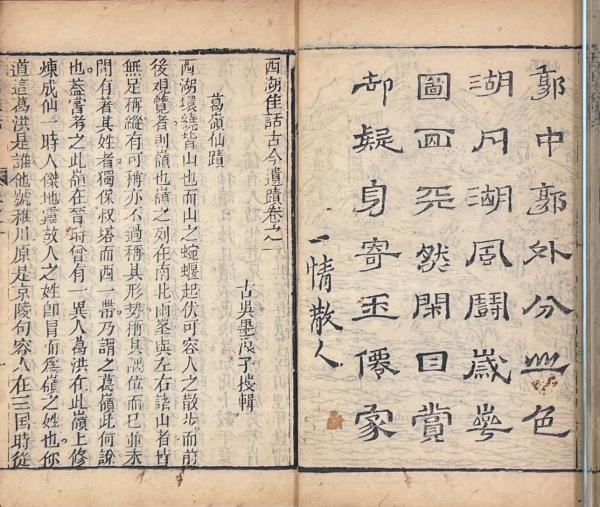 郭中郭外分山色
湖月湖風鬪歲華
圖画天然閑日賞
却疑身寄玉僊家
一情散人
西湖佳話古今遺蹟卷之一
古吳墨浪子搜輯
葛嶺仙蹟
西湖環繞皆山也而山之蜿蜒起伏可容人之散步而前
後觀覽者則嶺也嶺之列在南北兩峯與左右諸山者皆
無足稱縱有可稱亦不過稱其形勢稱其隅位而已並未
聞有著其姓者獨保叔塔而西一帶乃謂之葛嶺此何說
也蓋嘗考之此嶺在晉時曾有一異人葛洪在此嶺上修
煉成仙一時人傑地靈故人之姓卽冒而爲嶺之姓也你
道這葛洪是誰他號稚川原是京陵句容人在三国時從